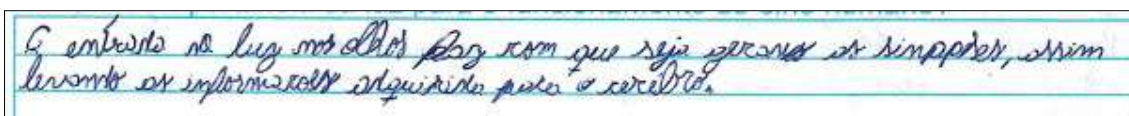 A entrada na luz nos olhos faz com que seja gerando as sinapses, assim
levando as informações adquirida para o cerebro.